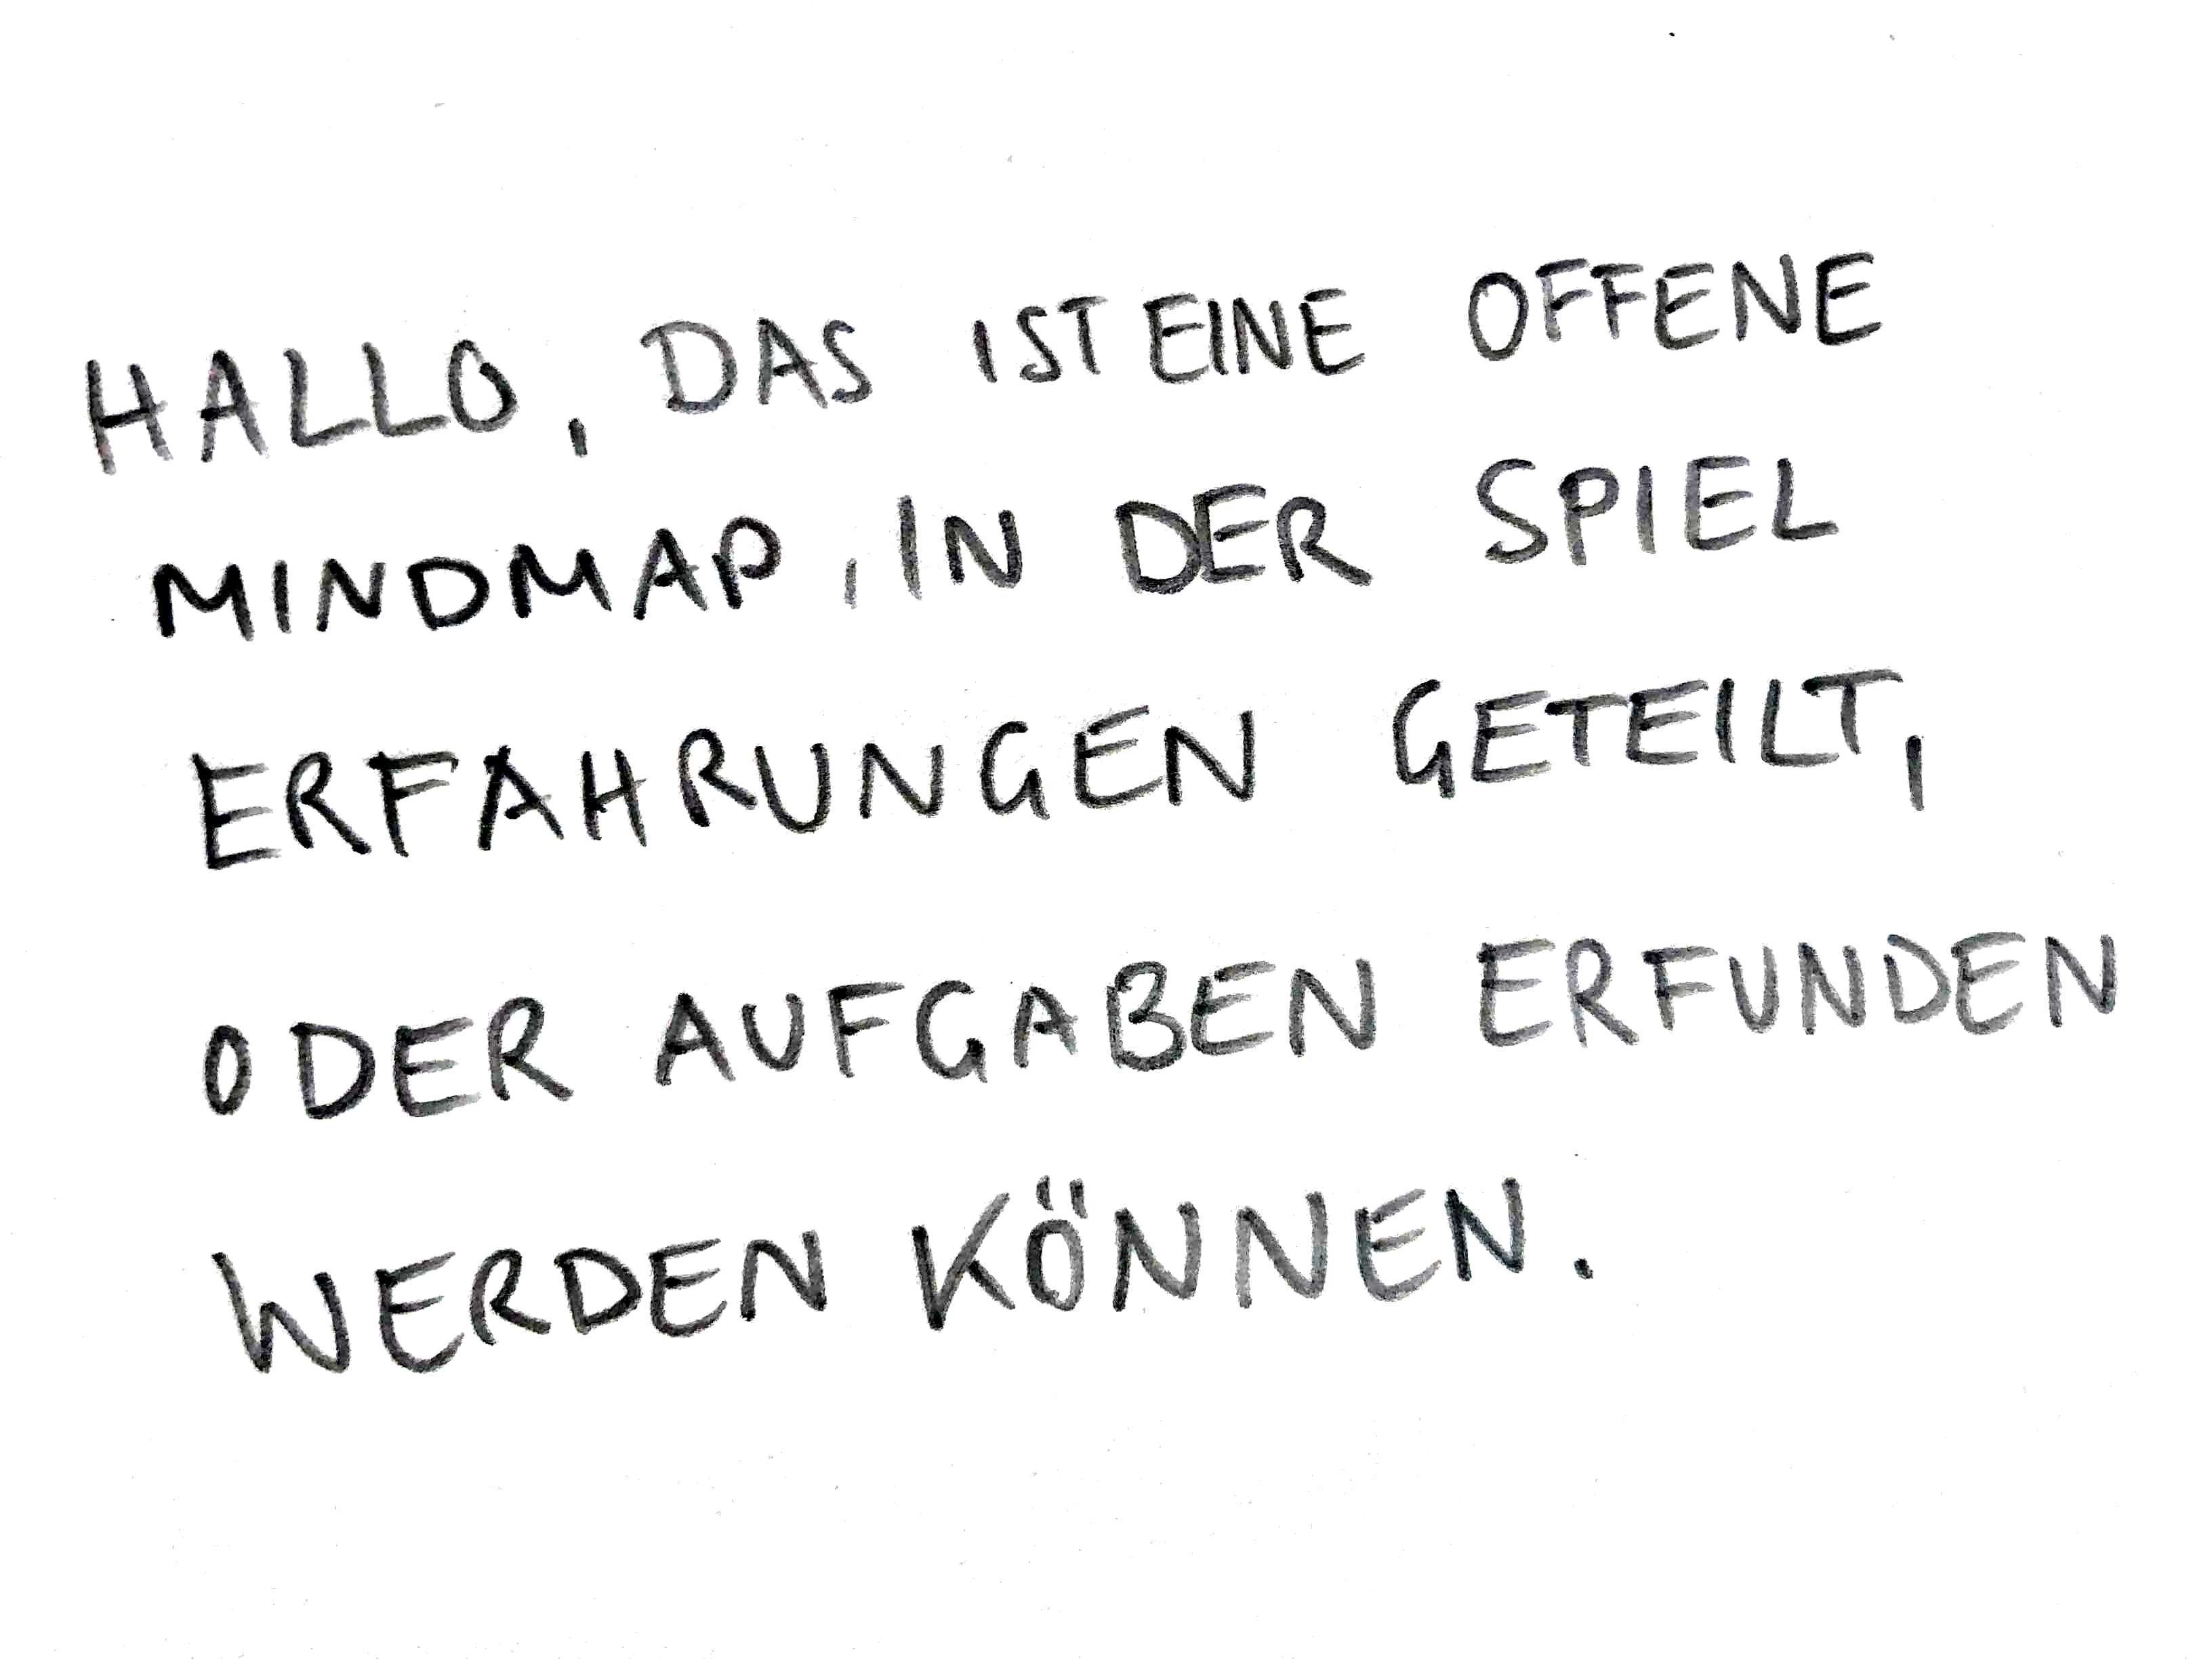 HALLO, DAS IST EINE OFFENE
MINDMAP, IN DER SPIEL
ERFAHRUNGEN GETEILT,
ODER AUFGABEN ERFUNDEN
WERDEN KÖNNEN.